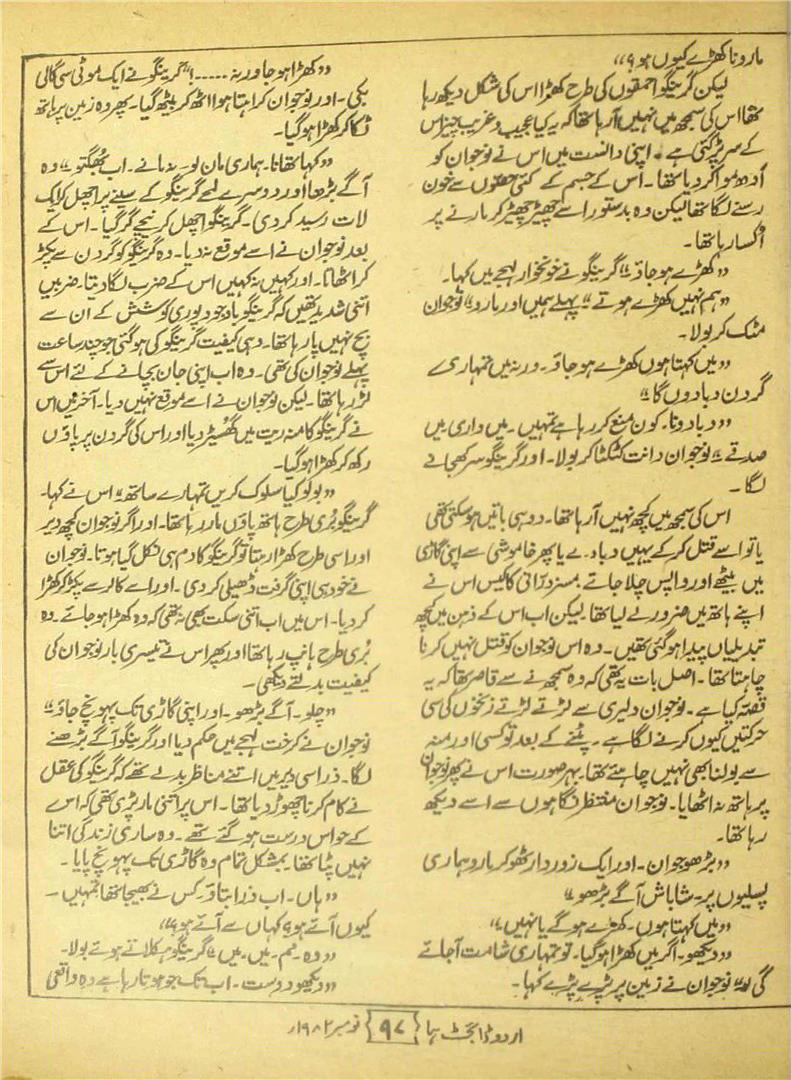 مارونا کھڑے کیوں ہو؟“
لیکن گرینگو احمقوں کی طرح کھڑا اس کی شکل دیکھ رہا
تھا اس کی سمجھ میں نہیں آرہا تھا کہ یہ کیا عجیب و غریب چیز اس
کے سر پڑ گئی ہے۔ اپنی دانست میں اس نے نوجوان کو
اُدھ موا کر دیا تھا۔ اس کے جسم کے کئی حصّوں سے خون
رسنے لگا تھا لیکن وہ بدستور اسے چھیڑ چھیڑ کر مارنے پر
اُکسا رہا تھا۔
”کھڑے ہو جاؤ“ گرینگو نے خونخوار لہجے میں کہا۔
”ہم نہیں کھڑے ہوتے“ پہلے ہمیں اور مارو“ نوجوان
مٹک کر بولا۔
”میں کہتا ہوں کھڑے ہو جاؤ۔ ورنہ میں تمہاری
گردن دبا دوں گا“
”دبا دو نا۔ کون منع کر رہا ہے تمہیں۔ میں واری میں
صدقے“ نوجوان دانت کٹکٹا کر بولا۔ اور گرینگو سر کھجانے
لگا۔
اس کی سمجھ میں کچھ نہیں آرہا تھا۔ دو ہی باتیں ہو سکتی تھی
یا تو اسے قتل کر کے یہیں دبا دے یا پھر خاموشی سے اپنی گاڑی
میں بیٹھے اور واپس چلا جائے۔ مسز ورآنی کا کیس اس نے
اپنے ہاتھ میں ضرور لے لیا تھا لیکن اب اس کے ذہن میں کچھ
تبدیلیاں پیدا ہو گئی تھیں۔ وہ اس نوجوان کو قتل نہیں کرنا
چاہتا تھا۔ اصل بات یہ تھی کہ وہ سمجھنے سے قاصر تھا کہ یہ
قصّہ کیا ہے۔ نوجوان دلیری سے لڑتے لڑتے زنخوں کی سی
حرکتیں کیوں کرنے لگا ہے۔ پٹنے کے بعد تو کسی اور منہ
سے بولنا بھی نہیں چاہئے تھا۔ بہر صورت اس نے پھر نوجوان
پر ہاتھ نہ اٹھایا۔ نوجوان منتظر نگاہوں سے اسے دیکھ
رہا تھا۔
”بڑھو جوان۔ اور ایک زوردار ٹھوکر مارو ہماری
پسلیوں پر۔ شاباش آگے بڑھو“
”میں کہتا ہوں۔ کھڑے ہو گے یا نہیں“
”دیکھو۔ اگر میں کھڑا ہو گیا۔ تو تمہاری شامت آجائے
گی“ نوجوان نے زمین پر پڑے پڑے کہا۔
”کھڑا ہو جا ورنہ۔۔۔۔۔!“ گرینگو نے ایک موٹی سی گالی
بکی۔ اور نوجوان کراہتا ہوا اٹھ کر بیٹھ گیا۔ پھر وہ زمین پر ہاتھ
ٹکا کر کھڑا ہو گیا۔
”کہا تھا نا۔ ہماری مان لو۔ نہ مانے۔ اب بُھگتو“ وہ
آگے بڑھا اور دوسرے لمحے گرینگو کے سینے پر اچھل کر ایک
لات رسید کر دی۔ گرینگو اچھل کر نیچے گر گیا۔ اس کے
بعد نوجوان نے اسے موقع نہ دیا۔ وہ گرینگو کو گردن سے پکڑ
کر اٹھاتا۔ اور کہیں نہ کہیں اس کے ضرب لگا دیتا۔ ضربیں
اتنی شدید تھیں کہ گرینگو باوجود پوری کوشش کے ان سے
بچ نہیں پا رہا تھا۔ وہی کیفیت گرینگو کی ہو گئی جو چند ساعت
پہلے نوجوان کی تھی۔ وہ اب اپنی جان بچانے کے لئے اس سے
لڑ رہا تھا۔ لیکن نوجوان نے اسے موقع نہیں دیا۔ آخر میں اس
نے گرینگو کا منہ ریت میں گھُسیڑ دیا اور اس کی گردن پر پاؤں
رکھ کر کھڑا ہو گیا۔
”بولو کیا سلوک کریں تمہارے ساتھ“ اس نے کہا۔
گرینگو بُری طرح ہاتھ پاؤں مار رہا تھا۔ اور اگر نوجوان کچھ دیر
اور اسی طرح کھڑا رہتا تو گرینگو کا دم ہی نکل گیا ہوتا۔ نوجوان
نے خود ہی اپنی گرفت ڈھیلی کر دی۔ اور اسے کالر سے پکڑ کر کھڑا
کر دیا۔ اس میں اب اتنی سکت بھی نہ تھی کہ وہ کھڑا ہو جائے۔ وہ
بُری طرح ہانپ رہا تھا اور پھر اس نے تیسری بار نوجوان کی
کیفیت بدلتے دیکھی۔
”چلو۔ آگے بڑھو۔ اور اپنی گاڑی تک پہونچ جاؤ“
نوجوان نے کرخت لہجے میں حکم دیا اور گرینگو آگے بڑھنے
لگا۔ ذرا سی دیر میں اتنے مناظر بدلے تھے کہ گرینگو کی عقل
نے کام کرنا چھوڑ دیا تھا۔ اس پر اتنی مار پڑی تھی کہ اس
کے حواس درست ہو گئے تھے۔ وہ ساری زندگی اتنا
نہیں پٹا تھا۔ بمشکل تمام وہ گاڑی تک پہونچ پایا۔
”ہاں۔ اب ذرا بتاؤ۔ کس نے بھیجا تھا تمہیں۔
کیوں آئے ہو؟ کہاں سے آئے ہو؟“
”وہ۔ مم۔ میں۔ میں“ گرینگو ہکلاتے ہوئے بولا۔
”دیکھو دوست۔ اب تک جو ہوتا رہا ہے وہ واقعی
اردو ڈائجسٹ ہما {۹۷} نومبر ۱۹۸۲ء